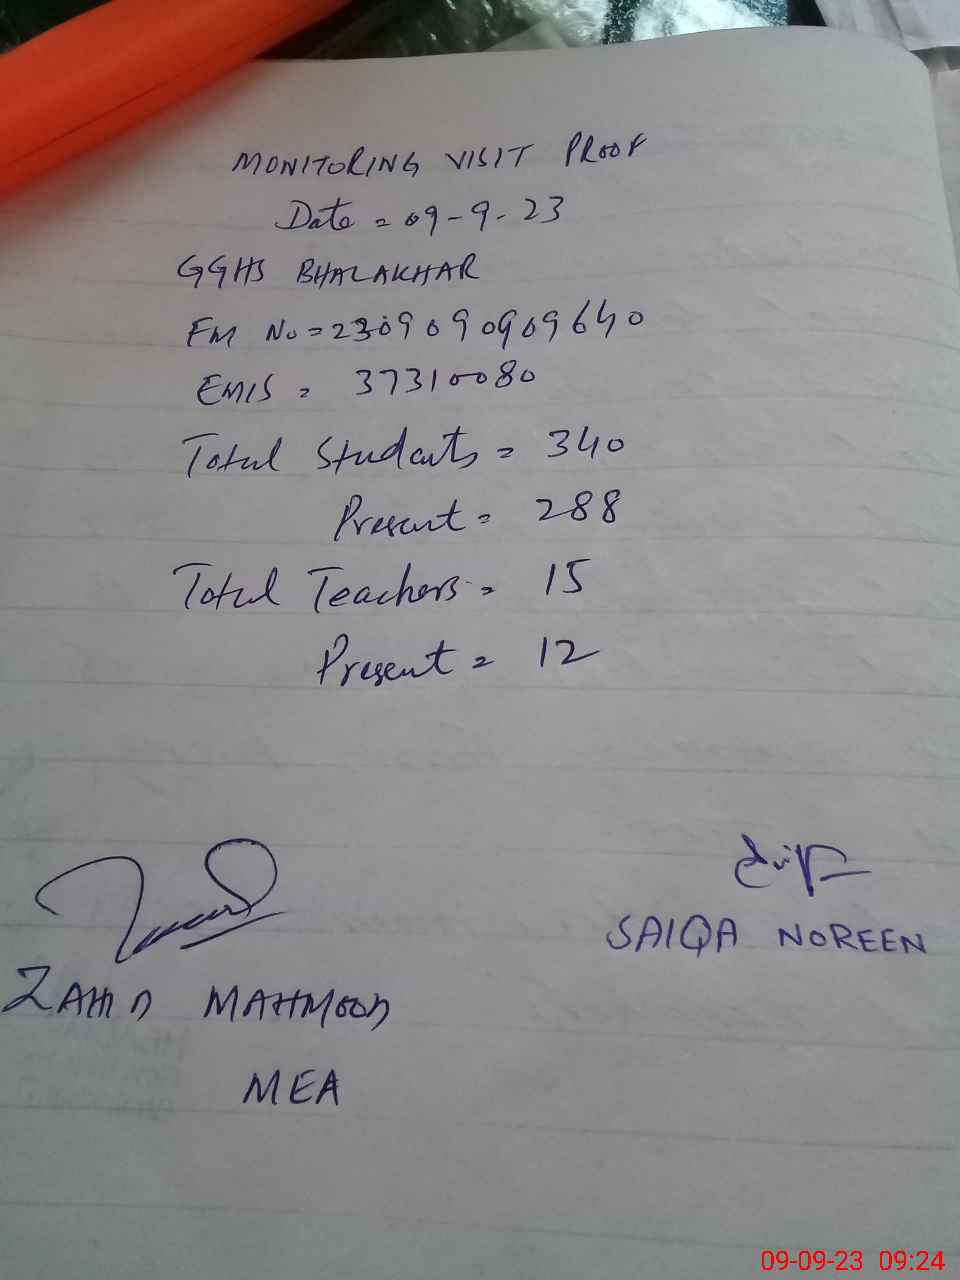 MONITORING VISIT PROOF
Date = 09-9-23
GGHS BHALAKHAR
FM No = 2309090909640
EMIS = 37310080
Total Students = 340
Present = 288
Total Teachers = 15
Present = 12
SAIQA NOREEN
ZAHID MAHMOOD
MEA
09-09-23 09:24